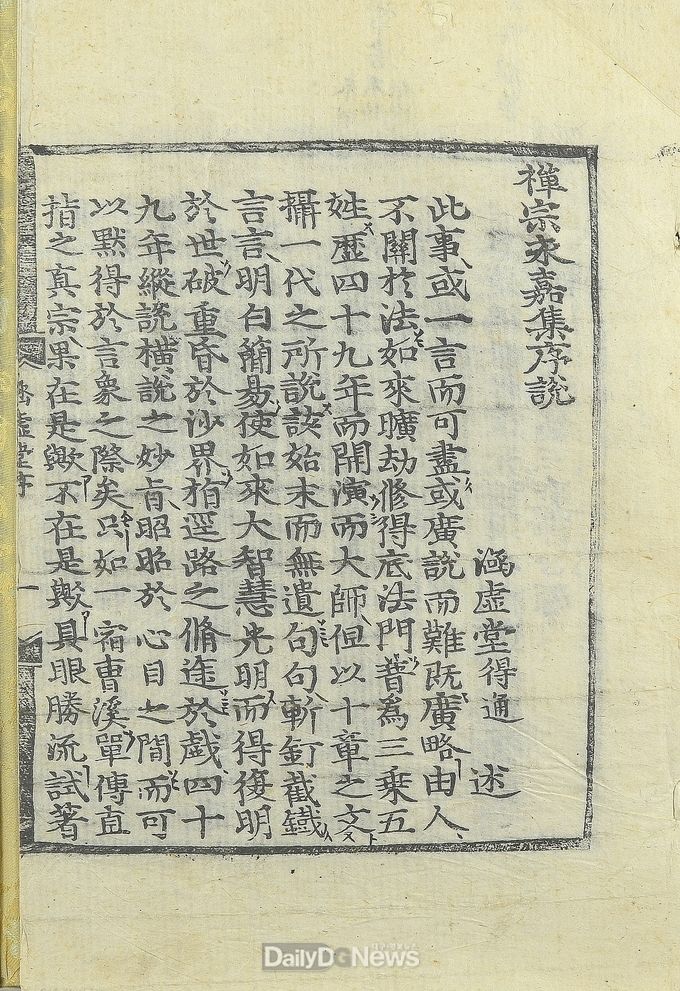 禪宗永嘉集序說
涵虛堂得通 述
此事或一言而可盡或廣說而難旣廣略由人
不關於法如來曠劫修得底法門普爲三乘五
姓歷四十九年而開演而大師但以十章之文
攝一代之所說該始末而無遺句句斬釘截鐵
言言明白簡易使如來大智慧光明而得復明
於世破重昏於沙界指逕路之脩途於戱四十
九年縱說橫說之妙旨昭昭於心目之間而可
以默得於言象之際矣只如一宿曹溪單傳直
指之真宗果在是歟不在是歟具眼勝流試著
涵虛堂序 一
DailyDGNews